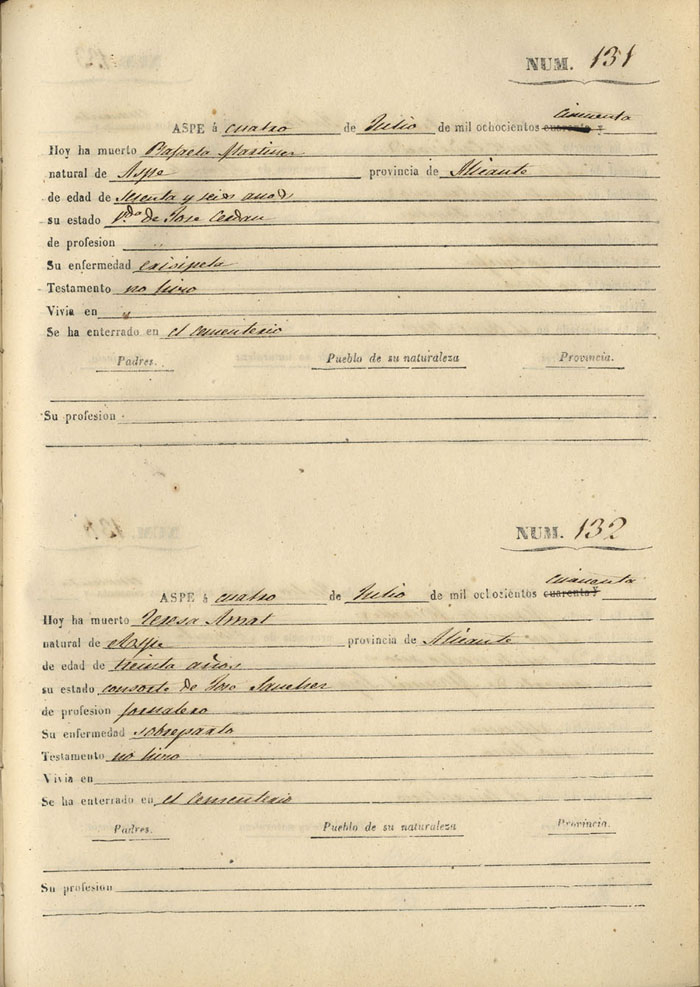 NUM. 131
cincuenta
ASPE á cuatro de Julio de mil ochocientos cuarenta y
Hoy ha muerto Rafaela Martinez
natural de Aspe provincia de Alicante
de edad de sesenta y seis anos
su estado V.da de Jose Cerdan
de profesion
Su enfermedad erisipela
Testamento no hizo
Vivia en
Se ha enterrado en el cementerio
Padres. Pueblo de su naturaleza Provincia.
Su profesion
NUM. 132
cincuenta
ASPE á cuatro de Julio de mil ochozientos cuarenta y
Hoy ha muerto Teresa Amat
natural de Aspe provincia de Alicante
de edad de treinta años
su estado consorte de José Sanchez
de profesion jornalero
Su enfermedad sobreparto
Testamento no hizo
Vivia en
Se ha enterrado en el Cementerio
Padres. Pueblo de su naturaleza Provincia.
Su profesion